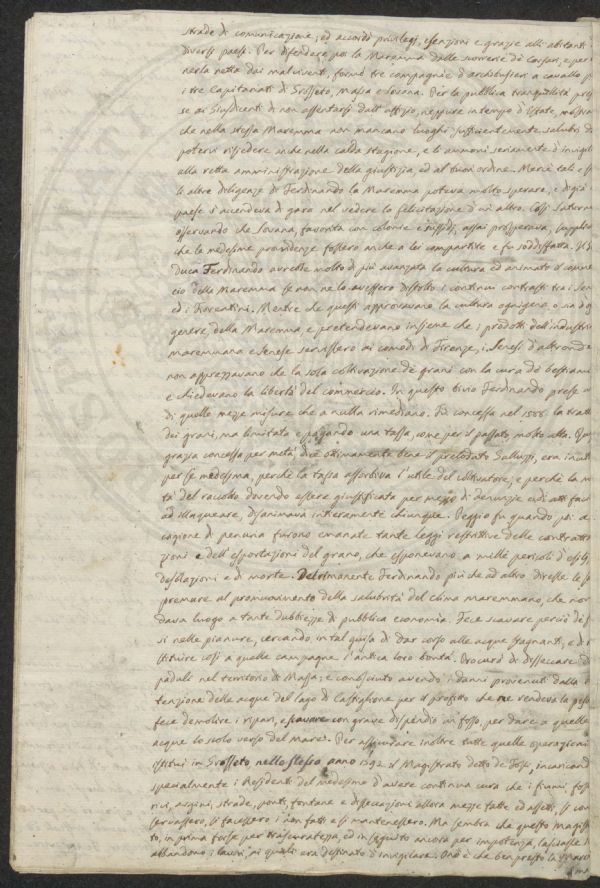 strade di comunicazione; ed accordò privilegj, esenzioni e grazie alli abitanti
diversi paesi. Per difendere poi la Maremma dalle scorrerie de' Corsari, e per
nerla netta dai malviventi, formò tre compagnie d'archibusieri a cavallo p
i tre Capitanati di Grosseto, Massa e Sovana. Per la pubblica tranquillità pres
se ai Giusdicenti di non assentarsi dall'uffizio, neppure in tempo d'Estate, mostran
che nella stessa Maremma non mancano luoghi sufficientemente salubri da
potervi risiedere anche nella calda stagione, e li ammonì seriamente d'invigil
alla retta amministrazione della giustizia, ed al buon ordine. Mercè tali e s
li altre diligenze di Ferdinando la Maremma poteva molto sperare, e di già
paese s'accendeva di gara nel vedere la felicitazione d'un'altro. Così Saturn
osservando che Sovana, favorita con colonie e sussidj, assai prosperava, supplic
che le medesime providenze fossero anche a lei compartite e fu soddisfatta. Il
duca Ferdinando avrebbe molto di più avanzata la cultura ed animato il comm
cio della Maremma se non ne lo avessero distolto i continui contrasti tra i Sen
ed i Fiorentini. Mentre che questi approvavano la cultura ognigena o sia d'og
genere della Maremma e pretendevano insieme che i prodotti dell'industria
maremmana e Senese servissero ai comodi di Firenze, i Senesi d'altronde
non apprezzavano che la sola coltivazione de' grani con la cura de' bestiami
e chiedevano la libertà del commercio. In questo bivio Ferdinando prese u
di quelle mezze misure che a nulla rimediano. Fù concessa nel 1588 la tratta
dei grani, ma limitata e pagando una tassa, come per il passato molto alta.
grazia concessa per metà, dice ottimamente bene il prelodato Galluzzi, era inut
per se medesima, perchè la tassa assorbiva l'utile del coltivatore, e perchè la m
tà del raccolto dovendo essere giustificata per mezzo di denunzie ed atti fac
ad illaqueare, disanimava intieramente chiunque. Peggio fu quando poi a
cagione di penuria furono emanate tante leggi restrittive delle contratta
zioni e dell'esportazioni del grano, che esponevano a mille pericoli d'esilj
desolazioni e di morte. Del rimanente Ferdinando più che ad altro diresse le s
premure al promuovimento della salubrità del clima maremmano, che non
dava luogo a tante dubbiezze di pubblica economia. Fece scavare perciò de' f
si nelle pianure, cercando in tal guisa di dar corso alle acque stagnanti, e di r
stituire così a quelle campagne l'antica loro bontà. Procurò di disseccare i
paduli nel territorio di Massa; e conosciuto avendo i danni provenuti dalla r
tenzione delle acque del lago di Castiglione per il profitto che ne rendeva la pes
fece demolire i ripari, e scavare con grave dispendio un fosso, per dare a quelle
acque lo scolo verso del Mare. Per assicurare inoltre tutte quelle operazioni
istituì in Grosseto nello stesso anno 1592 il Magistrato detto de' Fossi, incaricando
specialmente i Residenti del medesimo d'avere continua cura che i fiumi, fos
rivi, argini, strade, ponti, fontane e disseccazioni allora mezze fatte ed assetti, si con
servassero, si facessero i non fatti e si mantenessero. Ma sembra che questo magis
to, in prima forse per trascuratezza, ed in seguito ancora per impotenza, lasciasse i
abbandono i lavori, ai quali era destinato d'invigilare. Ond'è che ben presto la Mare